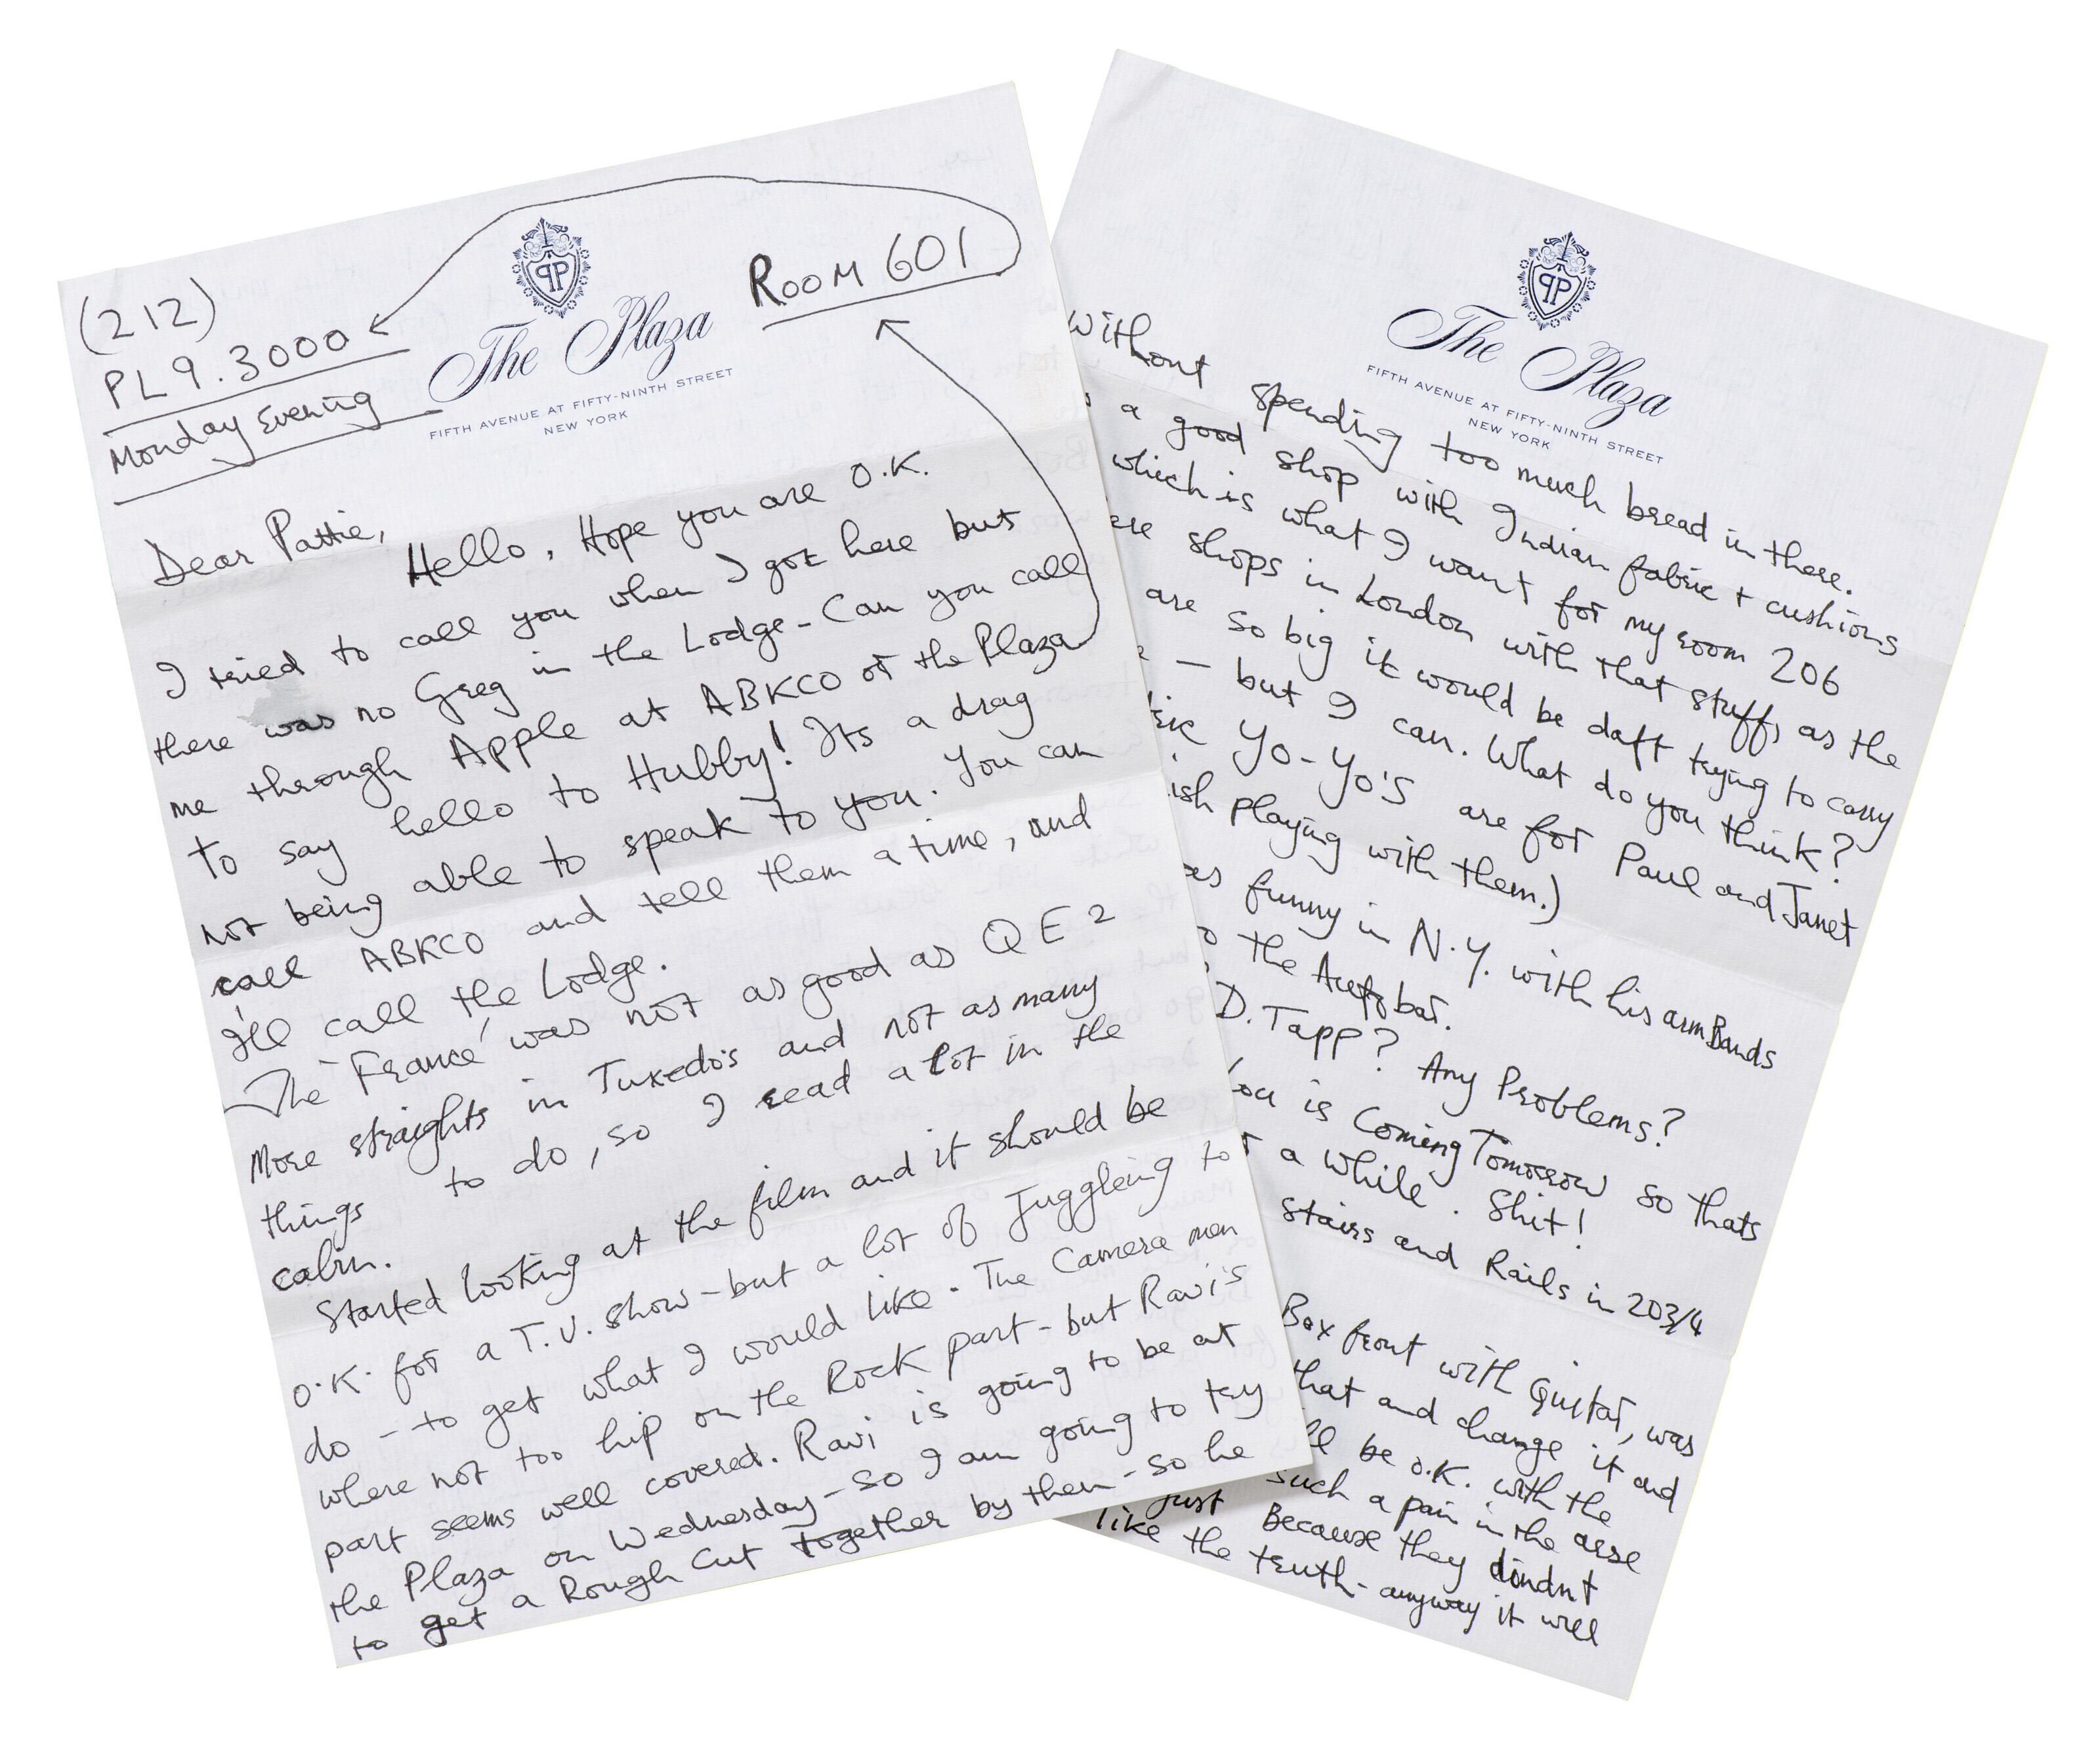 (212)
PL9.3000
Monday Evening
PP
The Plaza
FIFTH AVENUE AT FIFTY-NINTH STREET
NEW YORK
ROOM 601
Dear Pattie,
Hello, Hope you are O.K.
I tried to call you when I got here but
there was no Greg in the Lodge - Can you call
me through Apple at ABKCO or the Plaza
to say hello to Hubby! Its a drag
not being able to speak to you. You can
call ABKCO and tell them a time, and
I'll call the Lodge.
The 'France' was not as good as QE2
More straights in Tuxedo's and not as many
things to do, so I read a lot in the
cabin.
Started looking at the film and it should be
O.K. for a T.V. show - but a lot of Juggleing to
do - to get what I would like. The Camera men
where not too hip on the Rock part - but Ravi's
part seems well covered. Ravi is going to be at
the Plaza on Wednesday - so I am going to try
to get a Rough Cut together by then - so he
PP
The Plaza
FIFTH AVENUE AT FIFTY-NINTH STREET
NEW YORK
without spending too much bread in there.
a good shop with Indian fabric + cushions
which is what I want for my room 206
shops in London with that stuff, as the
are so big it would be daft trying to carry
- but I can. What do you think?
Yo-Yo's are for Paul and Janet
playing with them.)
funny in N.Y. with his armBands
the Autobar.
D. Tapp? Any Problems?
is Coming Tomorrow so thats
a while. Shit!
Stairs and Rails in 203/4
Box front with Guitar, was
that and change it and
be O.K. with the
such a pain in the arse
just Because they dindnt
like the truth - anyway it will